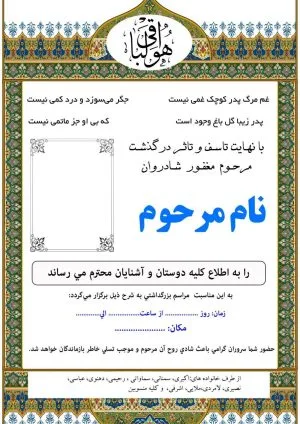 هو الباقی
غم مرگ پدر کوچک غمی نیست
جگر می‌سوزد و درد کمی نیست
پدر زیبا گل باغ وجود است
که بی او جز ماتمی نیست
با نهایت تاسف و تاثر درگذشت
مرحوم مغفور شادروان
نام مرحوم
را به اطلاع کلیه دوستان و آشنایان محترم می رساند
به این مناسبت مراسم بزرگداشتی به شرح ذیل برگزار می‌گردد:
زمان: روز ............... از ساعت............... الی...............
مکان: ........................
حضور شما سروران گرامی باعث شادی روح آن مرحوم و موجب تسلی خاطر بازماندگان خواهد شد.
از طرف خانواده های:اکبری، سمنانی، سماواتی ، رحیمی، دهنوی، عباسی،
نصیری، لامردی،ملایی، اشرفی، و کلیه منسوبین